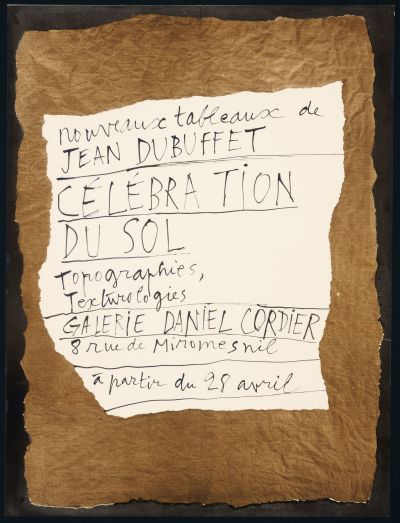 nouveaux tableaux de
JEAN DUBUFFET
CÉLÉBRATION
DU SOL
Topographies,
Texturologies
GALERIE DANIEL CORDIER
8 rue de Miromesnil
à partir du 28 avril